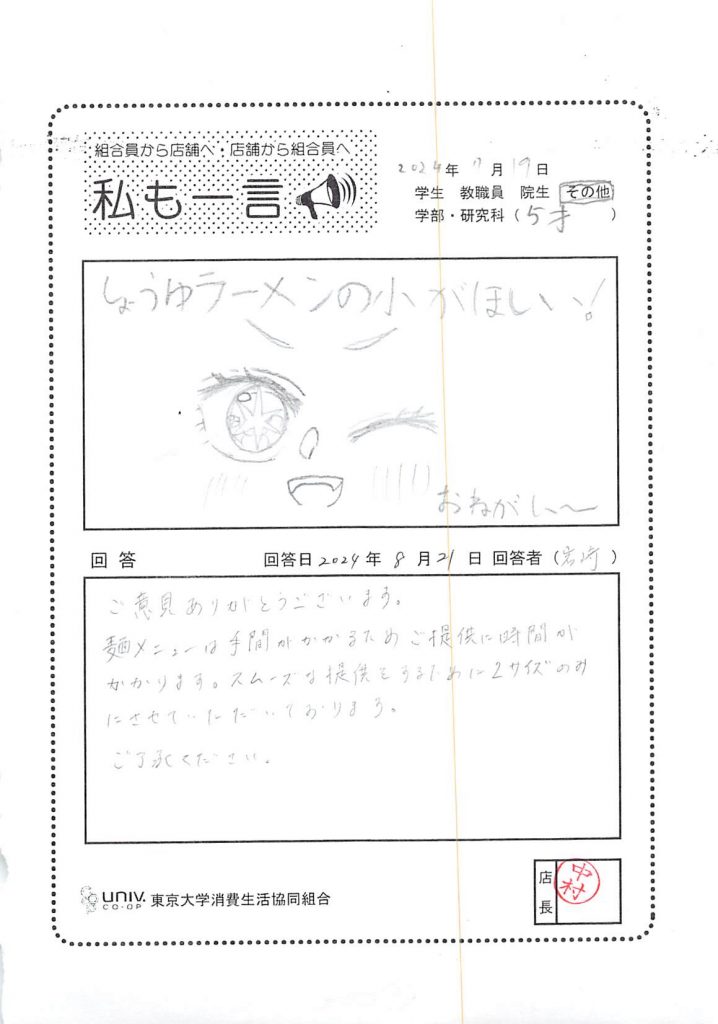 組合員から店舗へ・店舗から組合員へ
私も一言
2024年 7月 19日
学生 教職員 院生 その他
学部・研究科(5才)
しょうゆラーメンの小がほしい!
おねがい〜
回答 回答日2024年 8月21日 回答者(岩崎)
ご意見ありがとうございます。
麺メニューは手間がかかるためご提供に時間が
かかります。スムーズな提供をするために2サイズのみ
にさせていただいております。
ご了承ください。
UNIV. CO-OP 東京大学消費生活協同組合
店長 中村